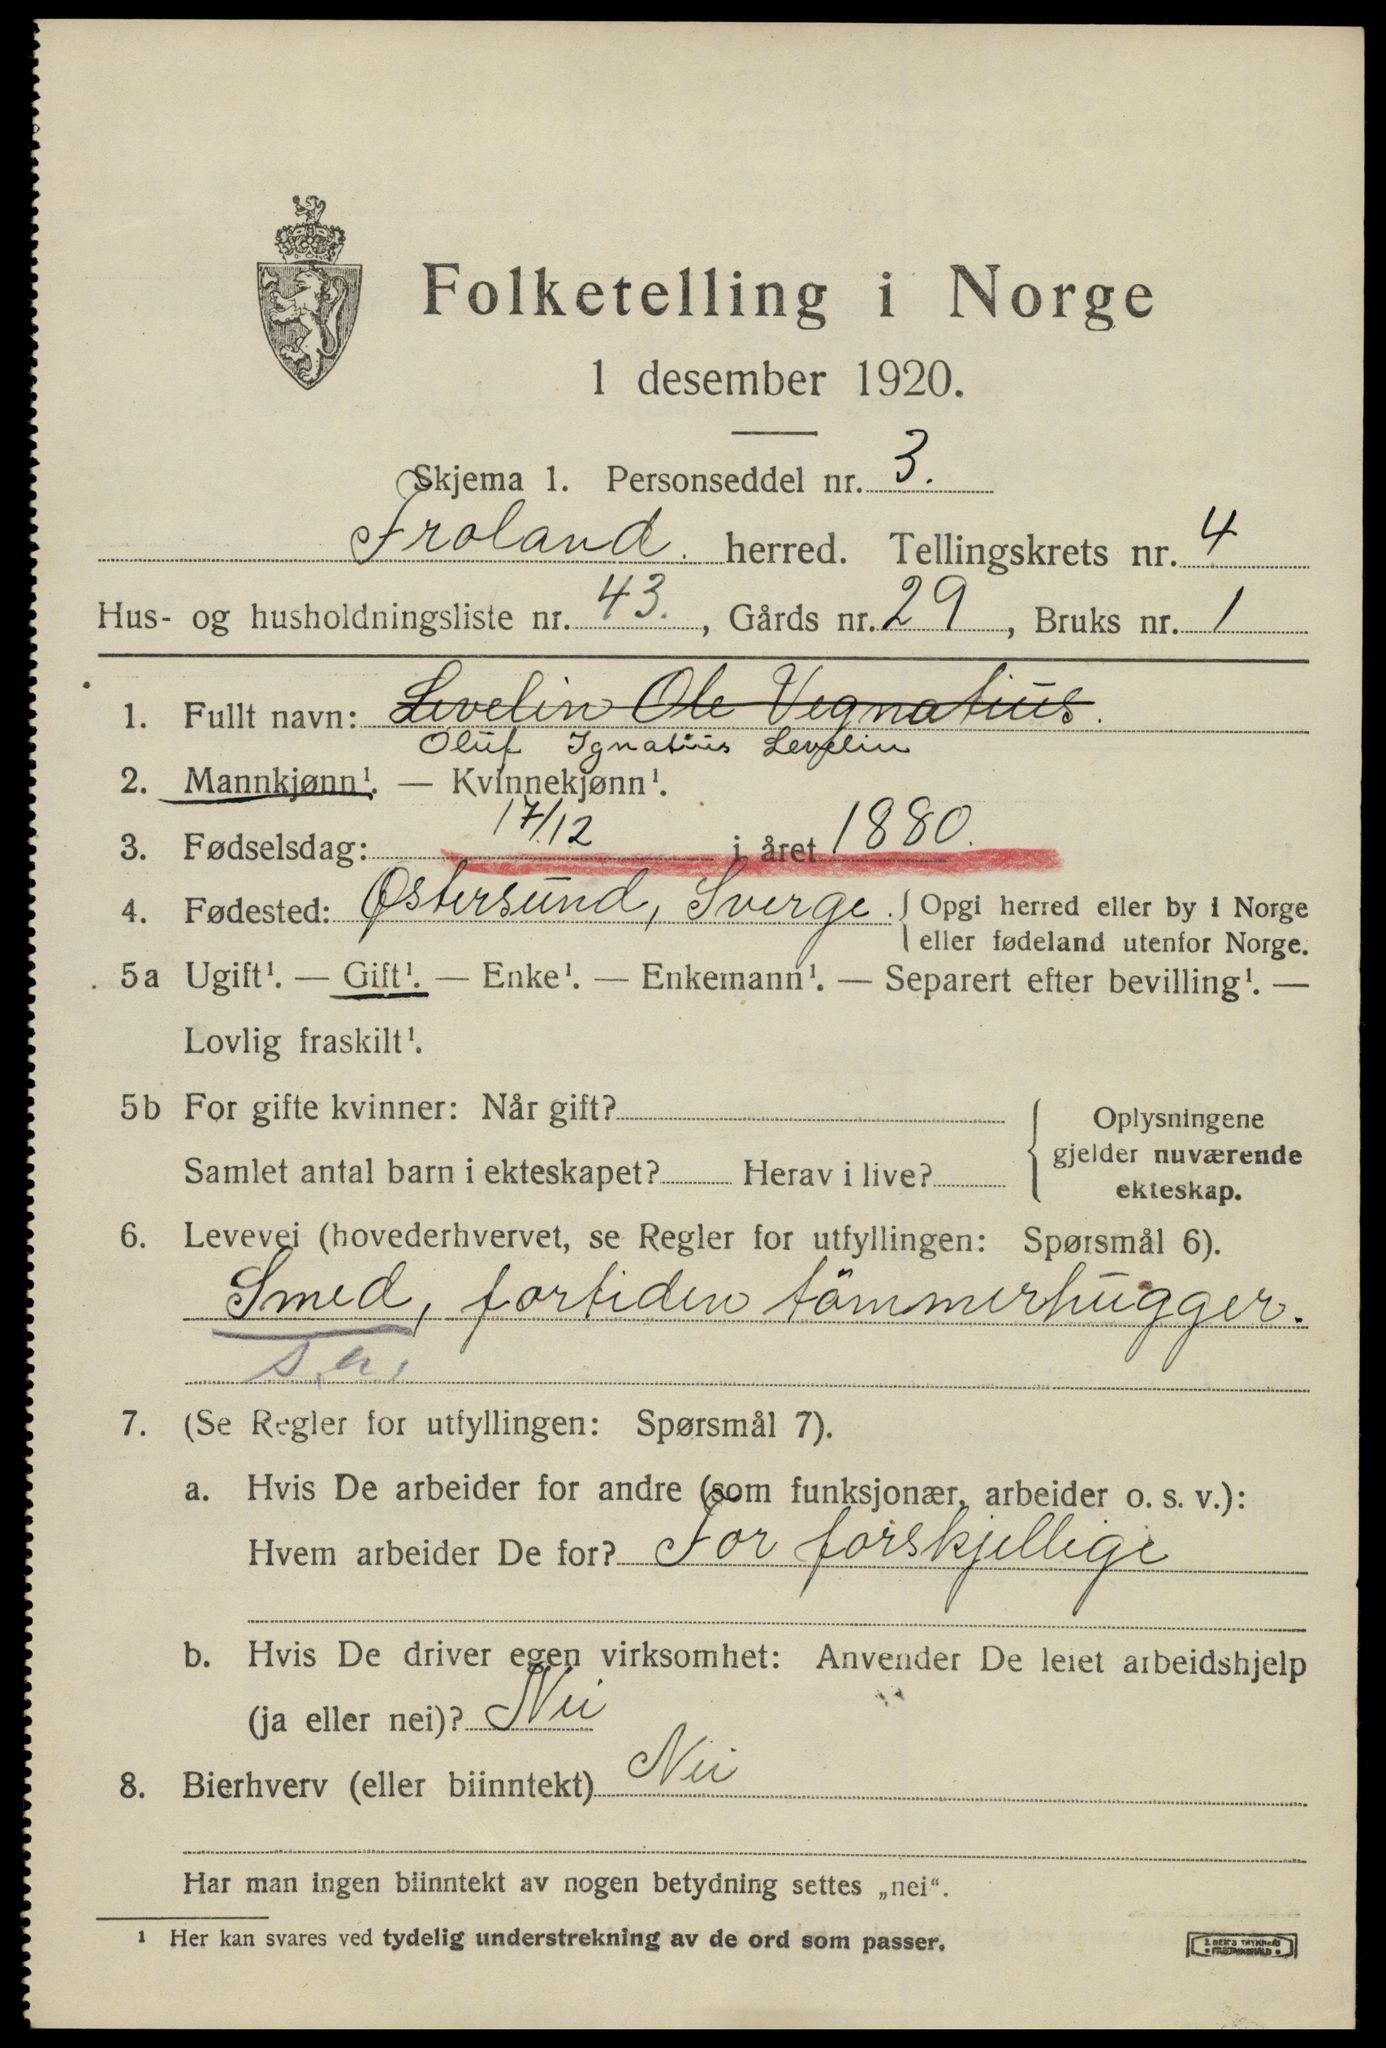 Folketelling i Norge
1 desember 1920.
Skjema 1. Personseddel nr. 3.
Froland. herred. Tellingskrets nr. 4
Hus- og husholdningsliste nr. 43., Gårds nr. 29, Bruks nr. 1
1. Fullt navn: Levelin Ole Vegnatius.
Oluf Ignatius Levelin
2. Mannkjønn¹. — Kvinnekjønn¹.
3. Fødselsdag: 17/12 i året 1880.
4. Fødested: Østersund, Sverge. { Opgi herred eller by i Norge
eller fødeland utenfor Norge.
5a Ugift¹. — Gift¹. — Enke¹. — Enkemann¹. — Separert efter bevilling¹. —
Lovlig fraskilt¹.
5b For gifte kvinner: Når gift?
Samlet antal barn i ekteskapet? Herav i live?
{ Oplysningene
gjelder nuværende
ekteskap.
6. Levevei (hovederhvervet, se Regler for utfyllingen: Spørsmål 6).
Smed, fortiden tömmerhugger.
7. (Se Regler for utfyllingen: Spørsmål 7).
a. Hvis De arbeider for andre (som funksjonær, arbeider o. s. v.):
Hvem arbeider De for? For forskjellige
b. Hvis De driver egen virksomhet: Anvender De leiet arbeidshjelp
(ja eller nei)? Nei
8. Bierhverv (eller biinntekt) Nei
Har man ingen biinntekt av nogen betydning settes „nei“.
¹ Her kan svares ved tydelig understrekning av de ord som passer.